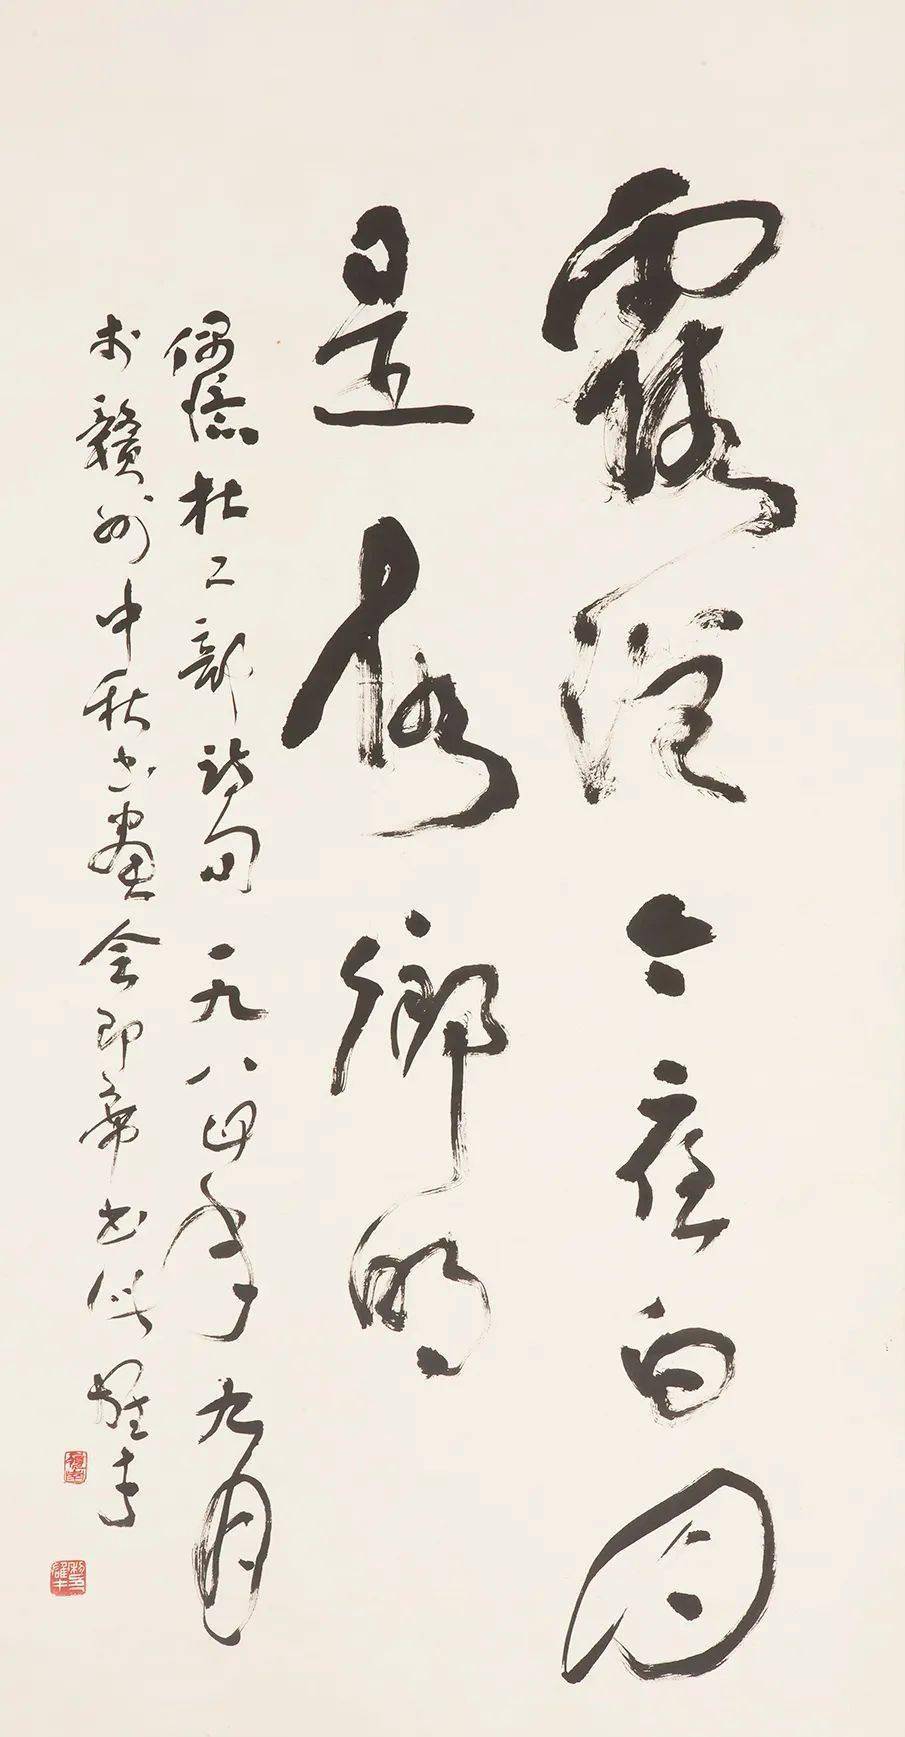 露從今夜白月
是故鄉明
偶憶杜工部詩句 一九八四年九月
於贛州中秋書畫會即席書 雄才